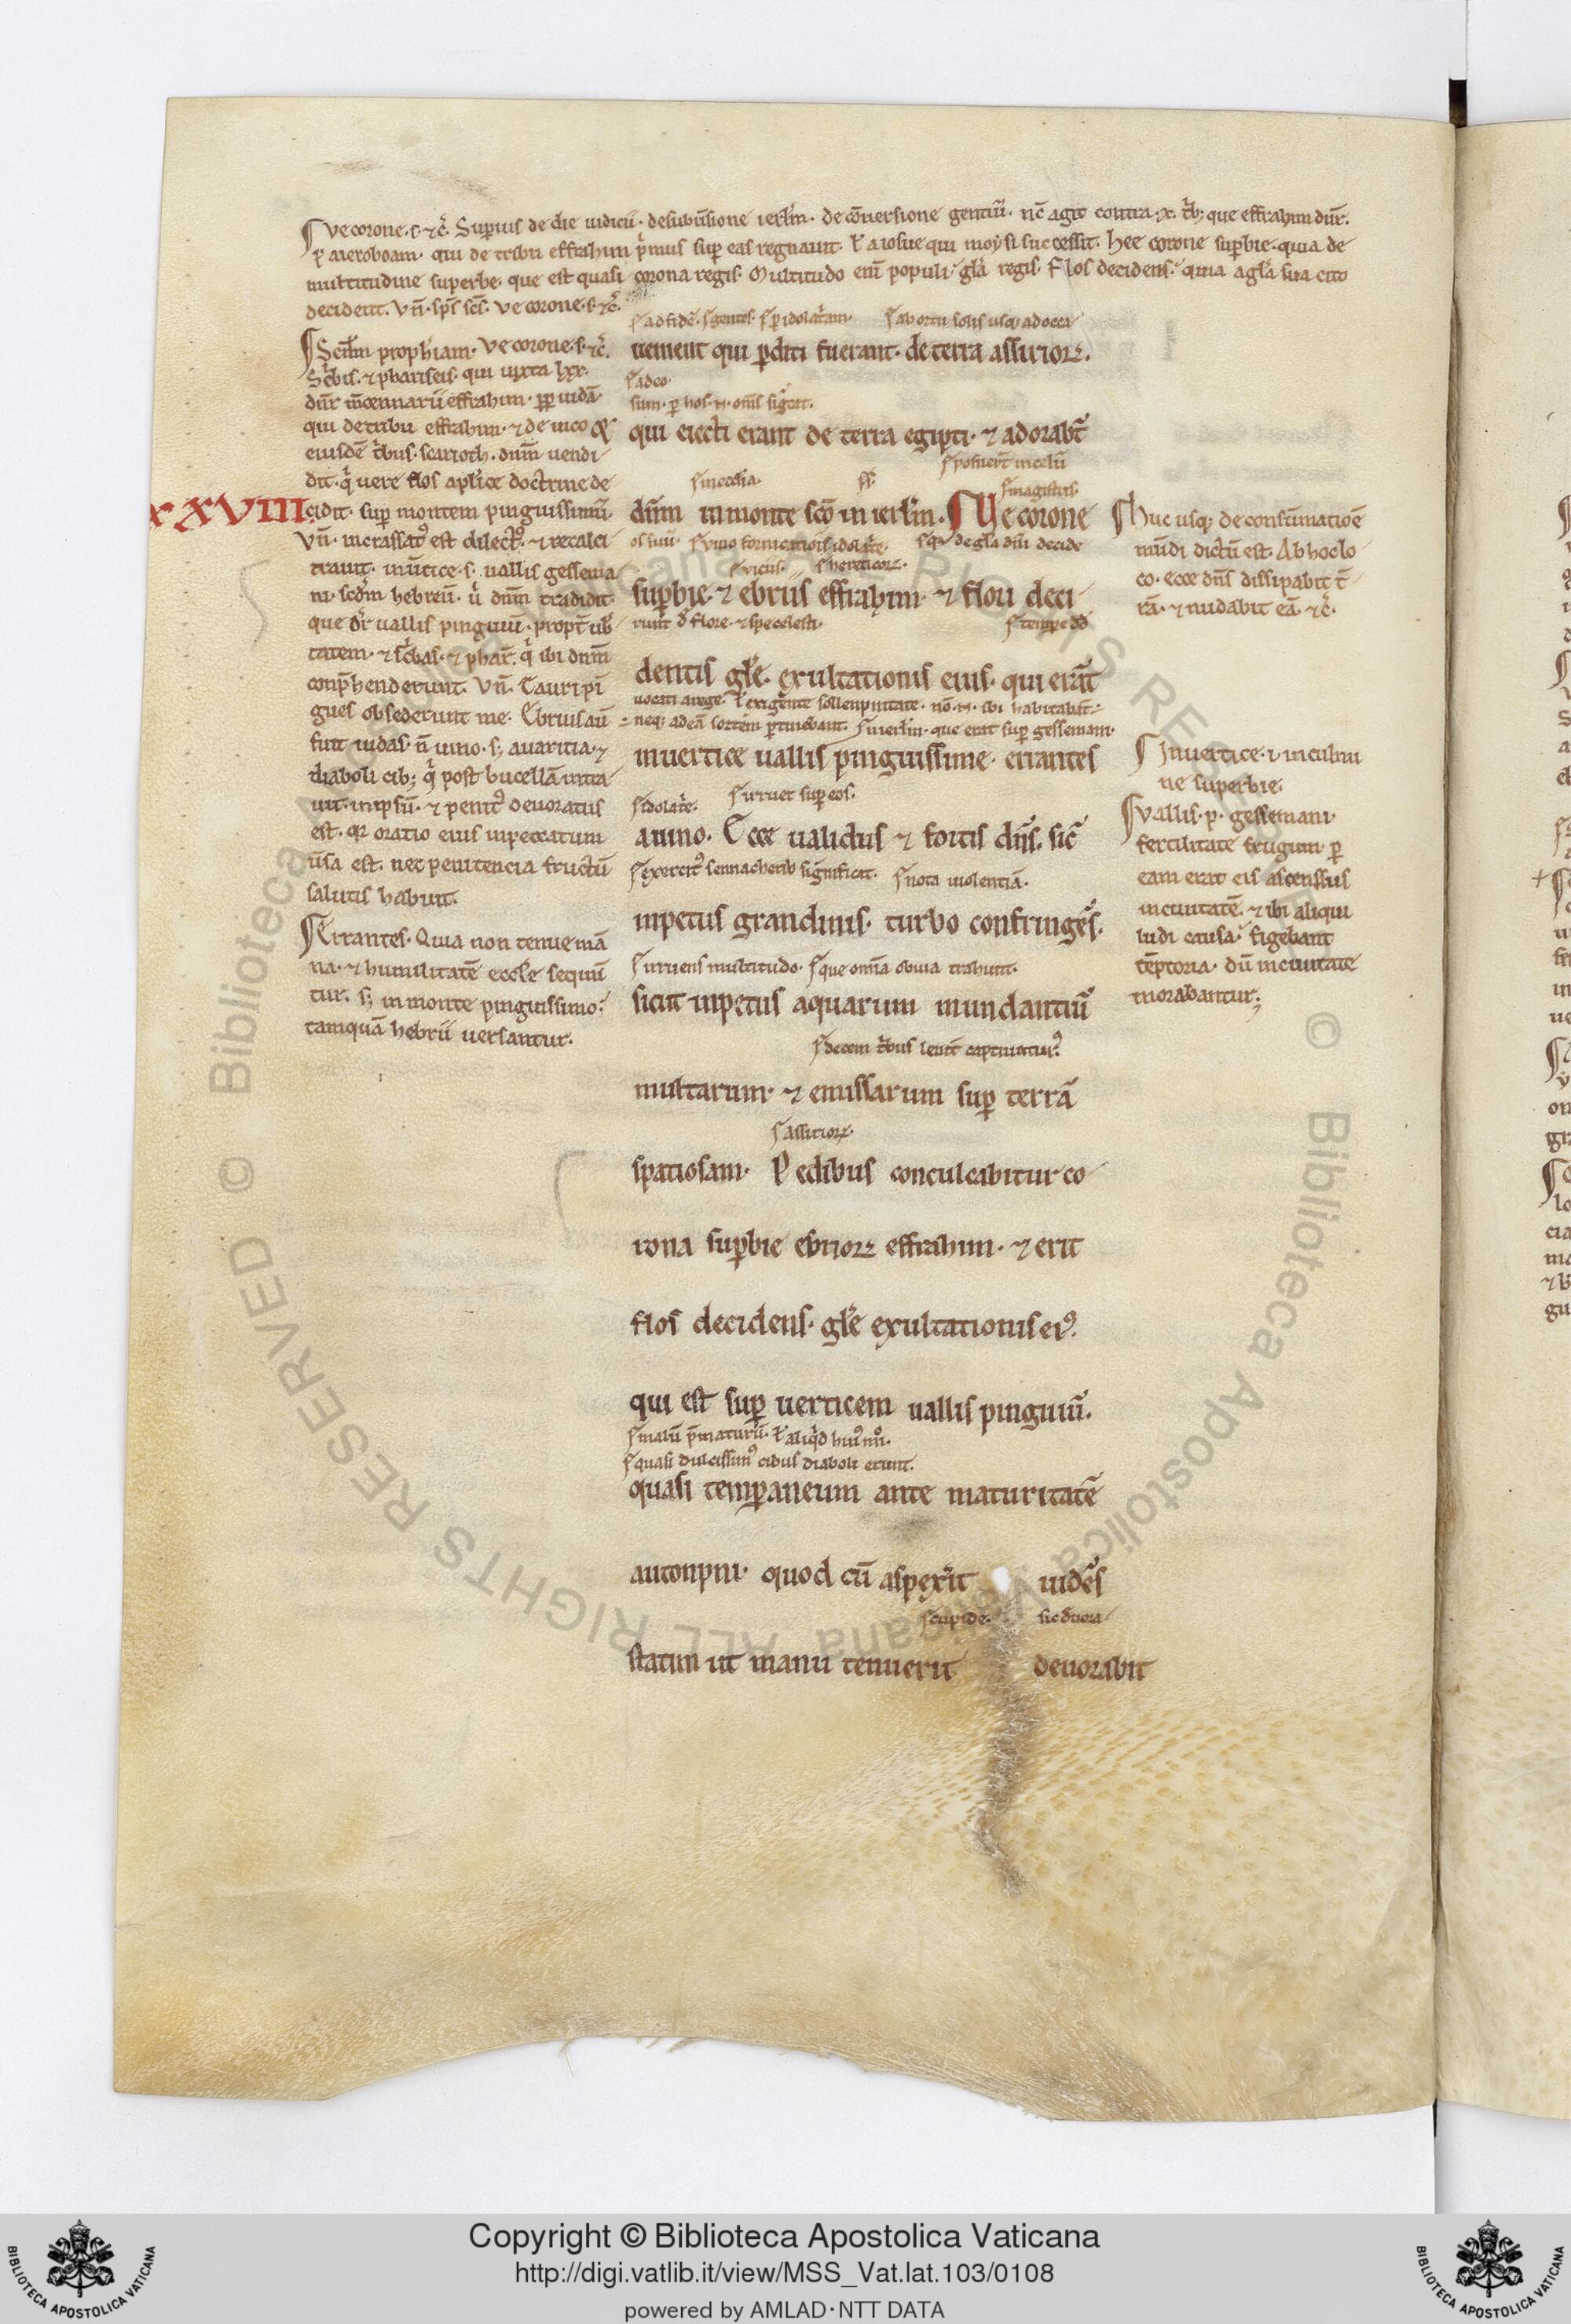 Ve corone. s. ⁊c̃. Supius de die iudicii. de subũsione ierlm̃. de cõuersione gentiũ. nc̃ agit contra .x. t̾b; que effrahim dñr.
ł a ieroboam. qui de tribu effrahim p̾mus sup eas regnauit. ł a iosue qui moysi successit. hee corone supbie. quia de
multitudine superbe. que est quasi corona regis. Multitudo eni̅ populi. gła regis. flos decidens. quia a gła sua cito
decidit. Vñ. sps̃ scs̃. ve corone. s. ⁊c̃.
Scdm̃ proph̾iam. Ve corone. s. ⁊c̃.
Sc̾bis. ⁊ phariseis. qui iuxta lxx.
dñr m̾cennarii effrahim. pp iudã.
qui de tribu effrahim. ⁊ de uico
eiusdẽ t̾bus. scarioth. dnm̃ uendi
dit. q̾ uere flos aplice doctrine de
XXVIII
cidit. sup montem pinguissimũ.
Vñ. incrassat⁹ est dilect⁹. ⁊ recalci
trauit. in ũtice. s. uallis gessema
ni. scd̾m hebreũ. u̾ dnm̃ tradidit
que dr̃ uallis pinguiũ. propt̃ ub̾
tatem. ⁊ sc̾bas. ⁊ phar̃. q̾ ibi dnm̃
conp̾henderunt. Vñ. Tauri pi̅
gues obsederunt me. Ebrius aũ
fuit iudas. ñ uino. s; auaritia. ⁊
diaboli cib; q̾ post bucellã intra
uit in ipsũ. ⁊ penit⁹ deuoratus
est. qr oratio eius in peccatum
ũsa est. nec penitencia fructũ
salutis habuit.
Errantes. Quia non tenue
na. ⁊ humilitatẽ eccłe sequun̅
tur. s; in monte pinguissimo.
tamquã hebrii uersantur.
ad fidẽ. gentes. p idolat̾am. ab ortu solis usq; ad occa
uenient qui pditi fuerant. de terra assirioꝝ.
a deo.
sum. p hos. n. om̃s sig̾cat.
qui eiecti erant de terra egipti. ⁊ adorabt̃
posuert̃ in celũ
in eccłia.
magistris.
dñm in monte scõ in ierłm. Ve corone
os suũ. uino fornicatiois̃ idolat̾e. q̾ de gła diũ decide
uiciis. hereticoꝝ.
supbie. ⁊ ebriis effrahim. ⁊ flori deci
runt d̃ flore.
tempe dd
dentis głe. exultationis eius. qui erãt
uocati a rege. ł exig̾nte sollempnitate. nõ. n. ibi habitabãt.
neq; ad eã sortem ptinebant. in ierłm. que erat sup gessemani.
in uertice uallis pinguissime. errantes
idolat̾e. irruet sup eos.
a uino. Ecce ualidus ⁊ fortis dñs. sic̃
exercit⁹ sennacherib significat. nota uiolentiã.
inpetus grandinis. turbo confringẽs.
irruens multitudo. que om̃a obuia trahunt.
sicut inpetus aquarum inundantiũ
decem t̾bus leuit̃ captiuitur⁹.
multarum. ⁊ emissarum sup terrã
assirioꝝ.
spatiosam. Pedibus conculcabitur co
rona supbie ebrioꝝ effrahim. ⁊ erit
flos decidens. głe exultationis ei⁹.
qui est sup uerticem uallis pinguiũ.
malũ p̾maturũ. ł aliq̾d hui⁹mõi.
quasi dulcissim⁹ cibus diaboli erunt.
quasi tempaneum ante maturitatẽ
autonpni. quod cũ aspex̾it uidẽs
cupide. sic deuora
statim ut manu tenuerit deuorabit
Huc usq; de consũmatiõe
mũdi dictũ est. Ab hoc lo
co. ecce dñs dissipabit t̃
rã. ⁊ nudabit eã. ⁊c̃.
In uertice. i. in culmi
ne superbie.
Vallis. p. gessemani.
fertilitate frugum. p
eam erat eis ascenssus
in ciuitatẽ. ⁊ ibi aliqui
ludi causa. figebant
tẽptoria. dũ in ciuitate
morabantur;
© Biblioteca Apostolica Vaticana ALL RIGHTS RESERVED
© Biblioteca Apostolica Vaticana ALL RIGHTS RESERVED
Copyright © Biblioteca Apostolica Vaticana
http://digi.vatlib.it/view/MSS_Vat.lat.103/0108
powered by AMLAD·NTT DATA
BIBLIOTECA APOSTOLICA VATICANA
BIBLIOTECA APOSTOLICA VATICANA